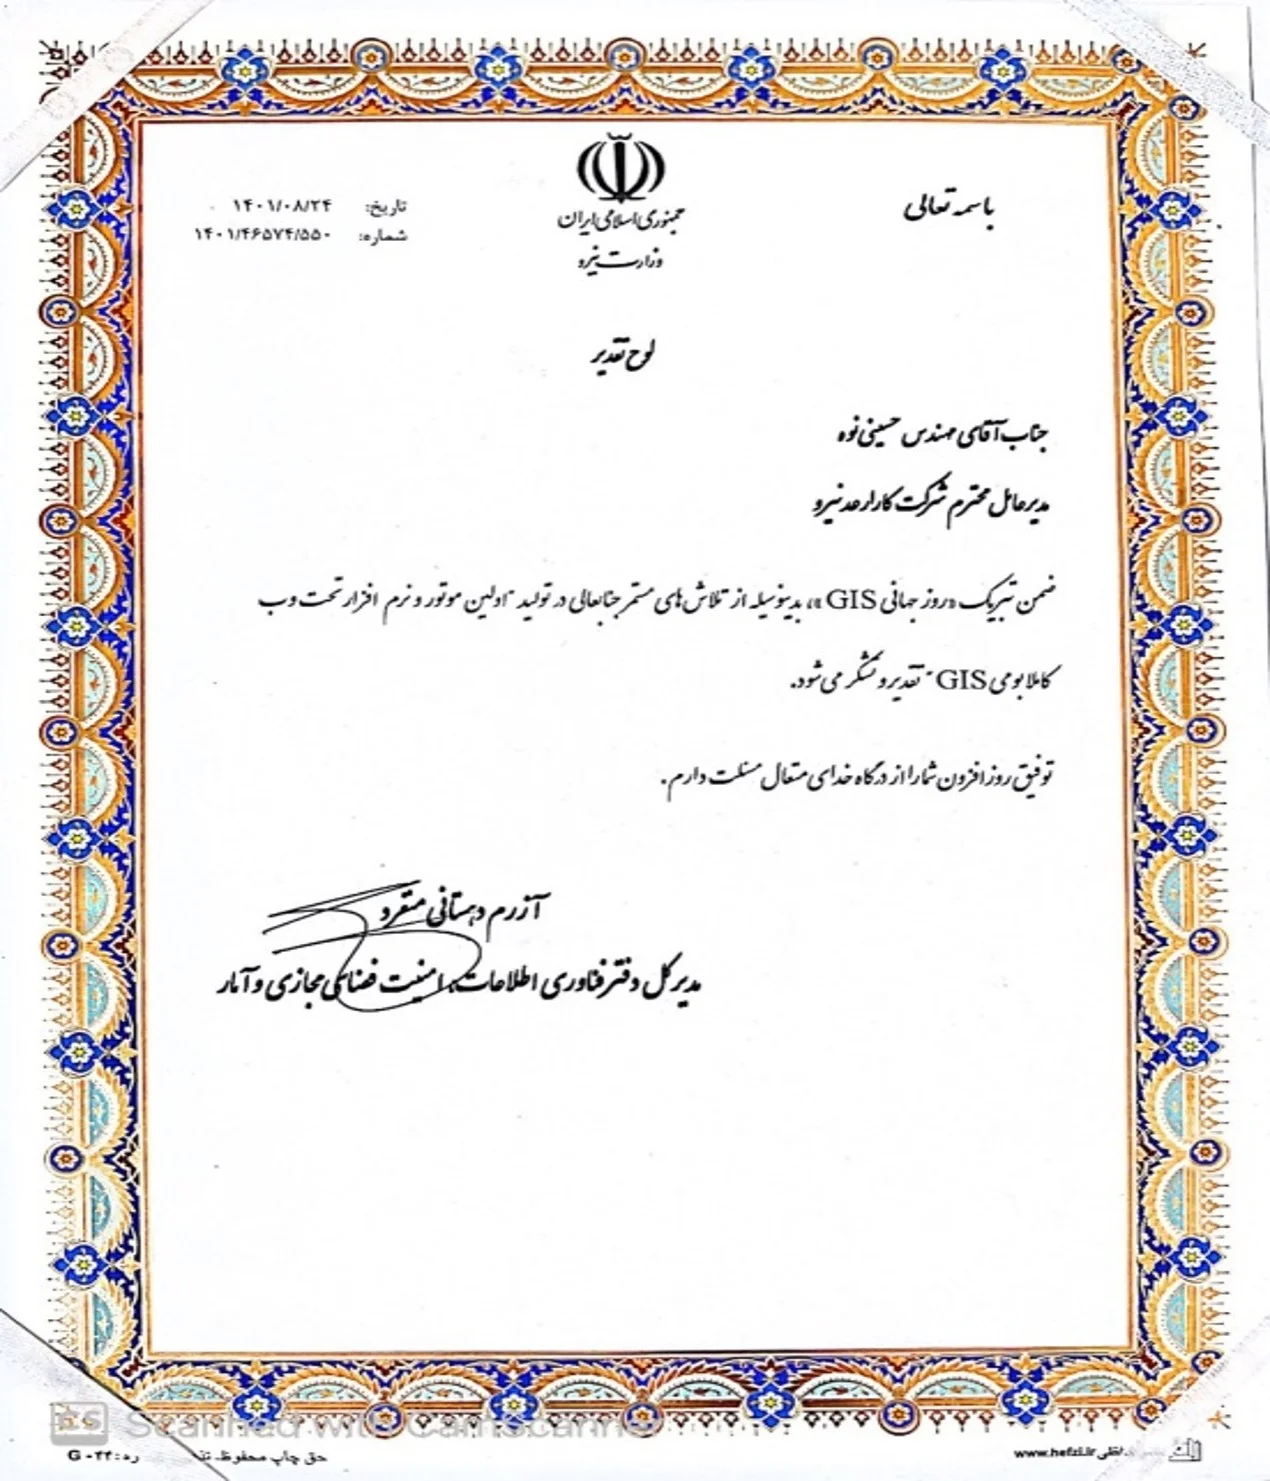 باسمه تعالی
جمهوری اسلامی ایران
وزارت نیرو
تاریخ: ۱۴۰۱/۰۸/۲۴
شماره: ۱۴۰۱/۴۶۵۷۴/۵۵۰
لوح تقدیر
جناب آقای مهندس حسینی نوه
مدیرعامل محترم شرکت کارارعد نیرو
ضمن تبریک «روز جهانی GIS»، بدینوسیله از تلاش های مستمر جنابعالی در تولید "اولین موتور و نرم افزار تحت وب
کاملا بومی GIS" تقدیر و تشکر می شود.
توفیق روزافزون شما را از درگاه خدای متعال مسئلت دارم.
آزرم دهستانی منفرد
مدیرکل دفتر فناوری اطلاعات، امنیت فضای مجازی و آمار
Scanned with CamScanner
حق چاپ محفوظ.
G-۴۴
www.hefzi.ir